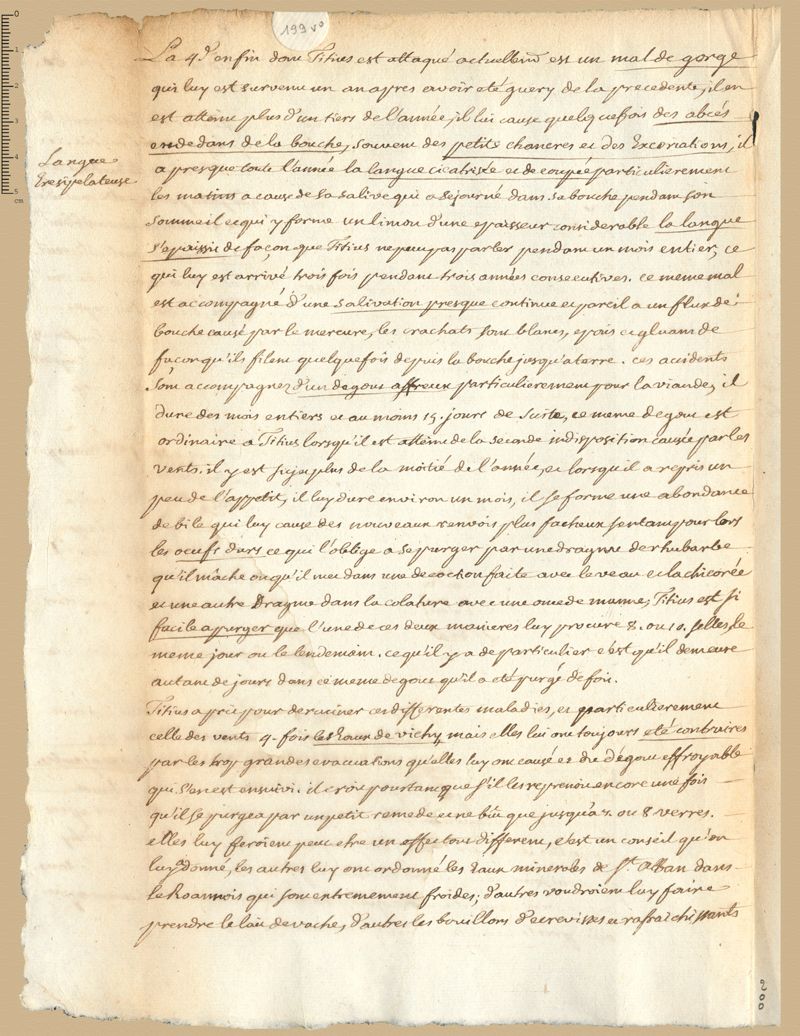 199 vo
La 4e. enfin dont Titius est attaqué actuellemt est un mal de gorge
qui luy est survenu un an apres avoir eté guery de la precedente, il en
est atteint plus d'un tiers de l'année, il lui cause quelquefois des abcés
endedans de la bouche, souvent des petits chancres et des Excoriations, il
Langue
Eresipelateuse
a presque toute l'année la langue cicatrisée et decoupée particulierement
les matins a cause de sa salive qui a sejourné dans sa bouche pendant son
sommeil et qui y forme un limon d'une epaisseur considerable la langue
s'epaissit de façon que Titius ne peut pas parler pendant un mois entier, ce
qui luy est arrivé trois fois pendant trois années consecutives. ce meme mal
est accompagné d'une salivation presque continue et pareil a un flux de
bouche causé par le mercure, les crachats sont blancs, epais et gluant de
façon qu'ils filent quelquefois depuis la bouche jusqu'a terre. ces accidents
sont accompagnez d'un degout affreux particulierement pour la viande, il
dure des mois entiers et au moins 15. jours de suite, ce meme degout est
ordinaire a Titius lorsqu'il est atteint de la seconde indisposition causée par les
vents. il y est sujet plus de la moitié de l'année, et lorsqu'il a repris un
peu de l'appetit, il luy dure environ un mois, il se forme une abondance
de bile qui luy cause des nouveaux renvois plus facheux sentant pour lors
les oeufs durs ce qui l'oblige a se purger par une dragme de rhubarbe
qu'il mâche ou qu'il met dans une decoction faite avec le veau et la chicorée
et une autre Dragme dans la colature avec une once de manne, Titius est si
facile a purger que l'une de ces deux manieres luy procure 8. ou 10. selles, le
meme jour ou le lendemain. ce qu'il y a de particulier c'est qu'il demeure
autant de jours dans ce meme degout qu'il a eté purgé de fois.
Titius a pris pour deraciner ces differentes maladies, et particulierement
celle des vents 4. fois les Eaux de vichy, mais elles lui ont toujours eté contraires
par les trop grandes evacuations qu'elles luy ont causé et du dégout effroyable
qui s'en est ensuivi. il croit pourtant que s'il les reprenoit encore une fois
qu'il se purgea par un petit remede et ne bût que jusqu'a 7. ou 8 verres.
elles luy feroient peut etre un effet tout different, c'est un conseil qu'on
luy a donné, les autres luy ont ordonné les Eaux minerales de St. Alban dans
le Roannois qui sont extremement froides; d'autres voudroient luy faire
prendre le lait de vache, d'autres les bouillons d'ecrevisses et rafraichissants
200